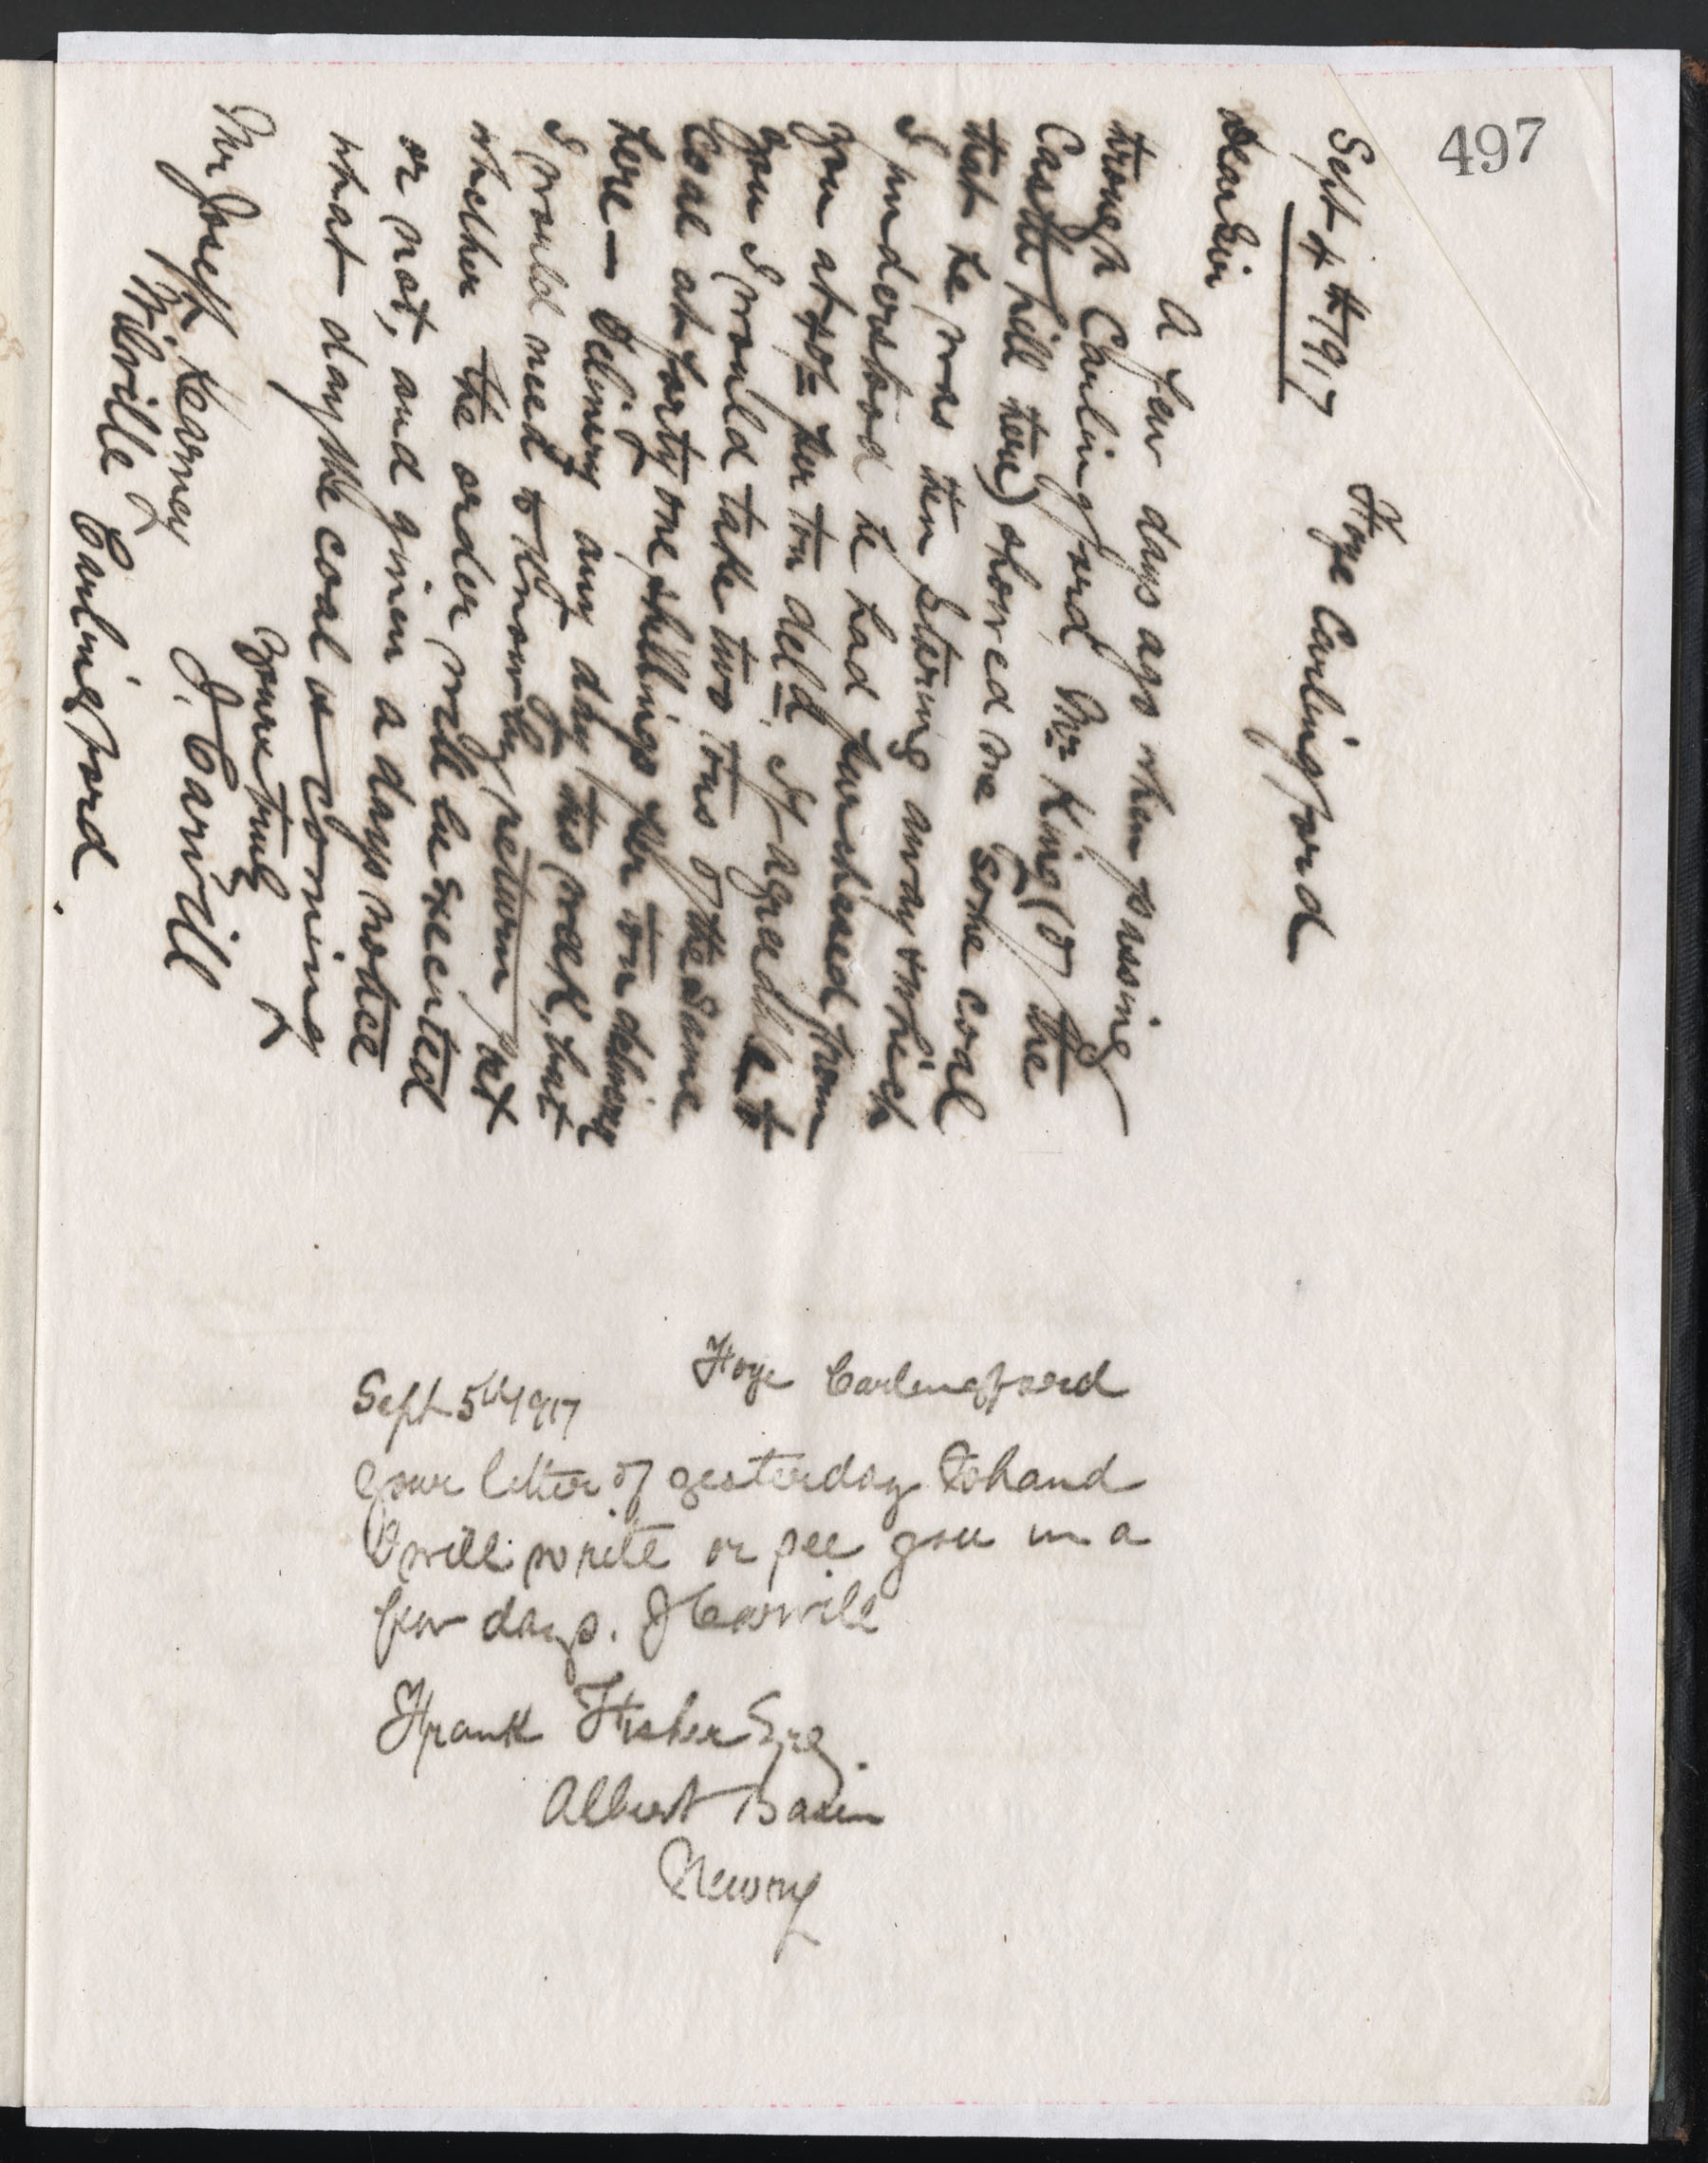 497
Foye Carlingford
Sept 4th 1917
Dear Sir
A few days ago when passing
through Carlingford Mr King (of the
Castle hill there) showed me some coal
that he was then storing away & which
I understood he had purchased from
you at 40/= per ton deld. If agreeable to
you I would take two tons of the same
Coal at forty one shillings per ton delivery
here — Delivery any day this week, but
I would need to know by return post
whether the order will be executed
or not, and given a days notice
what day the coal is coming
Yours truly
J. Carvill
Mr Joseph B. Kearney
Carlingford
Foye Carlingford
Sept 5th 1917
Your letter of yesterday to hand
I will write or see you in a
few days. J Carvill
Frank Fisher Esq.
Albert Basin
Newry